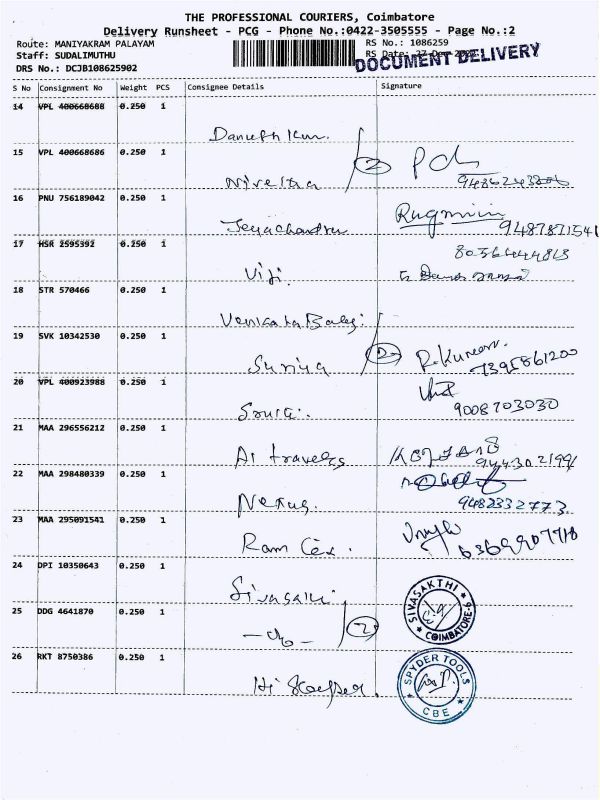 THE PROFESSIONAL COURIERS, Coimbatore
Delivery Runsheet - PCG - Phone No.:0422-3505555 - Page No.:2
Route: MANIYAKRAM PALAYAM
Staff: SUDALIMUTHU
DRS No.: DCJB108625902
RS No.: 1086259
RS Date:
DOCUMENT DELIVERY
S No Consignment No Weight PCS Consignee Details Signature
14 VPL 400668688 0.250 1
15 VPL 400668686 0.250 1 2
16 PNU 756189042 0.250 1 Jeyachandru 9487871541
17 HSR 2595392 0.250 1 Viji
18 STR 570466 0.250 1 Venkata Balaji
19 SVK 10342530 0.250 1 Suriya 2 R.Kumar 7395861200
20 VPL 400923988 0.250 1 9008703030
21 MAA 296556212 0.250 1 A1 travels 9443021991
22 MAA 298480339 0.250 1 Nexus. 9482332773
23 MAA 295091541 0.250 1 6369907718
24 DPI 10350643 0.250 1 Sivasakti SIVASAKTHI COIMBATORE-6
25 DDG 4641870 0.250 1 - do - 2
26 RKT 8750386 0.250 1 SPYDER TOOLS CBE